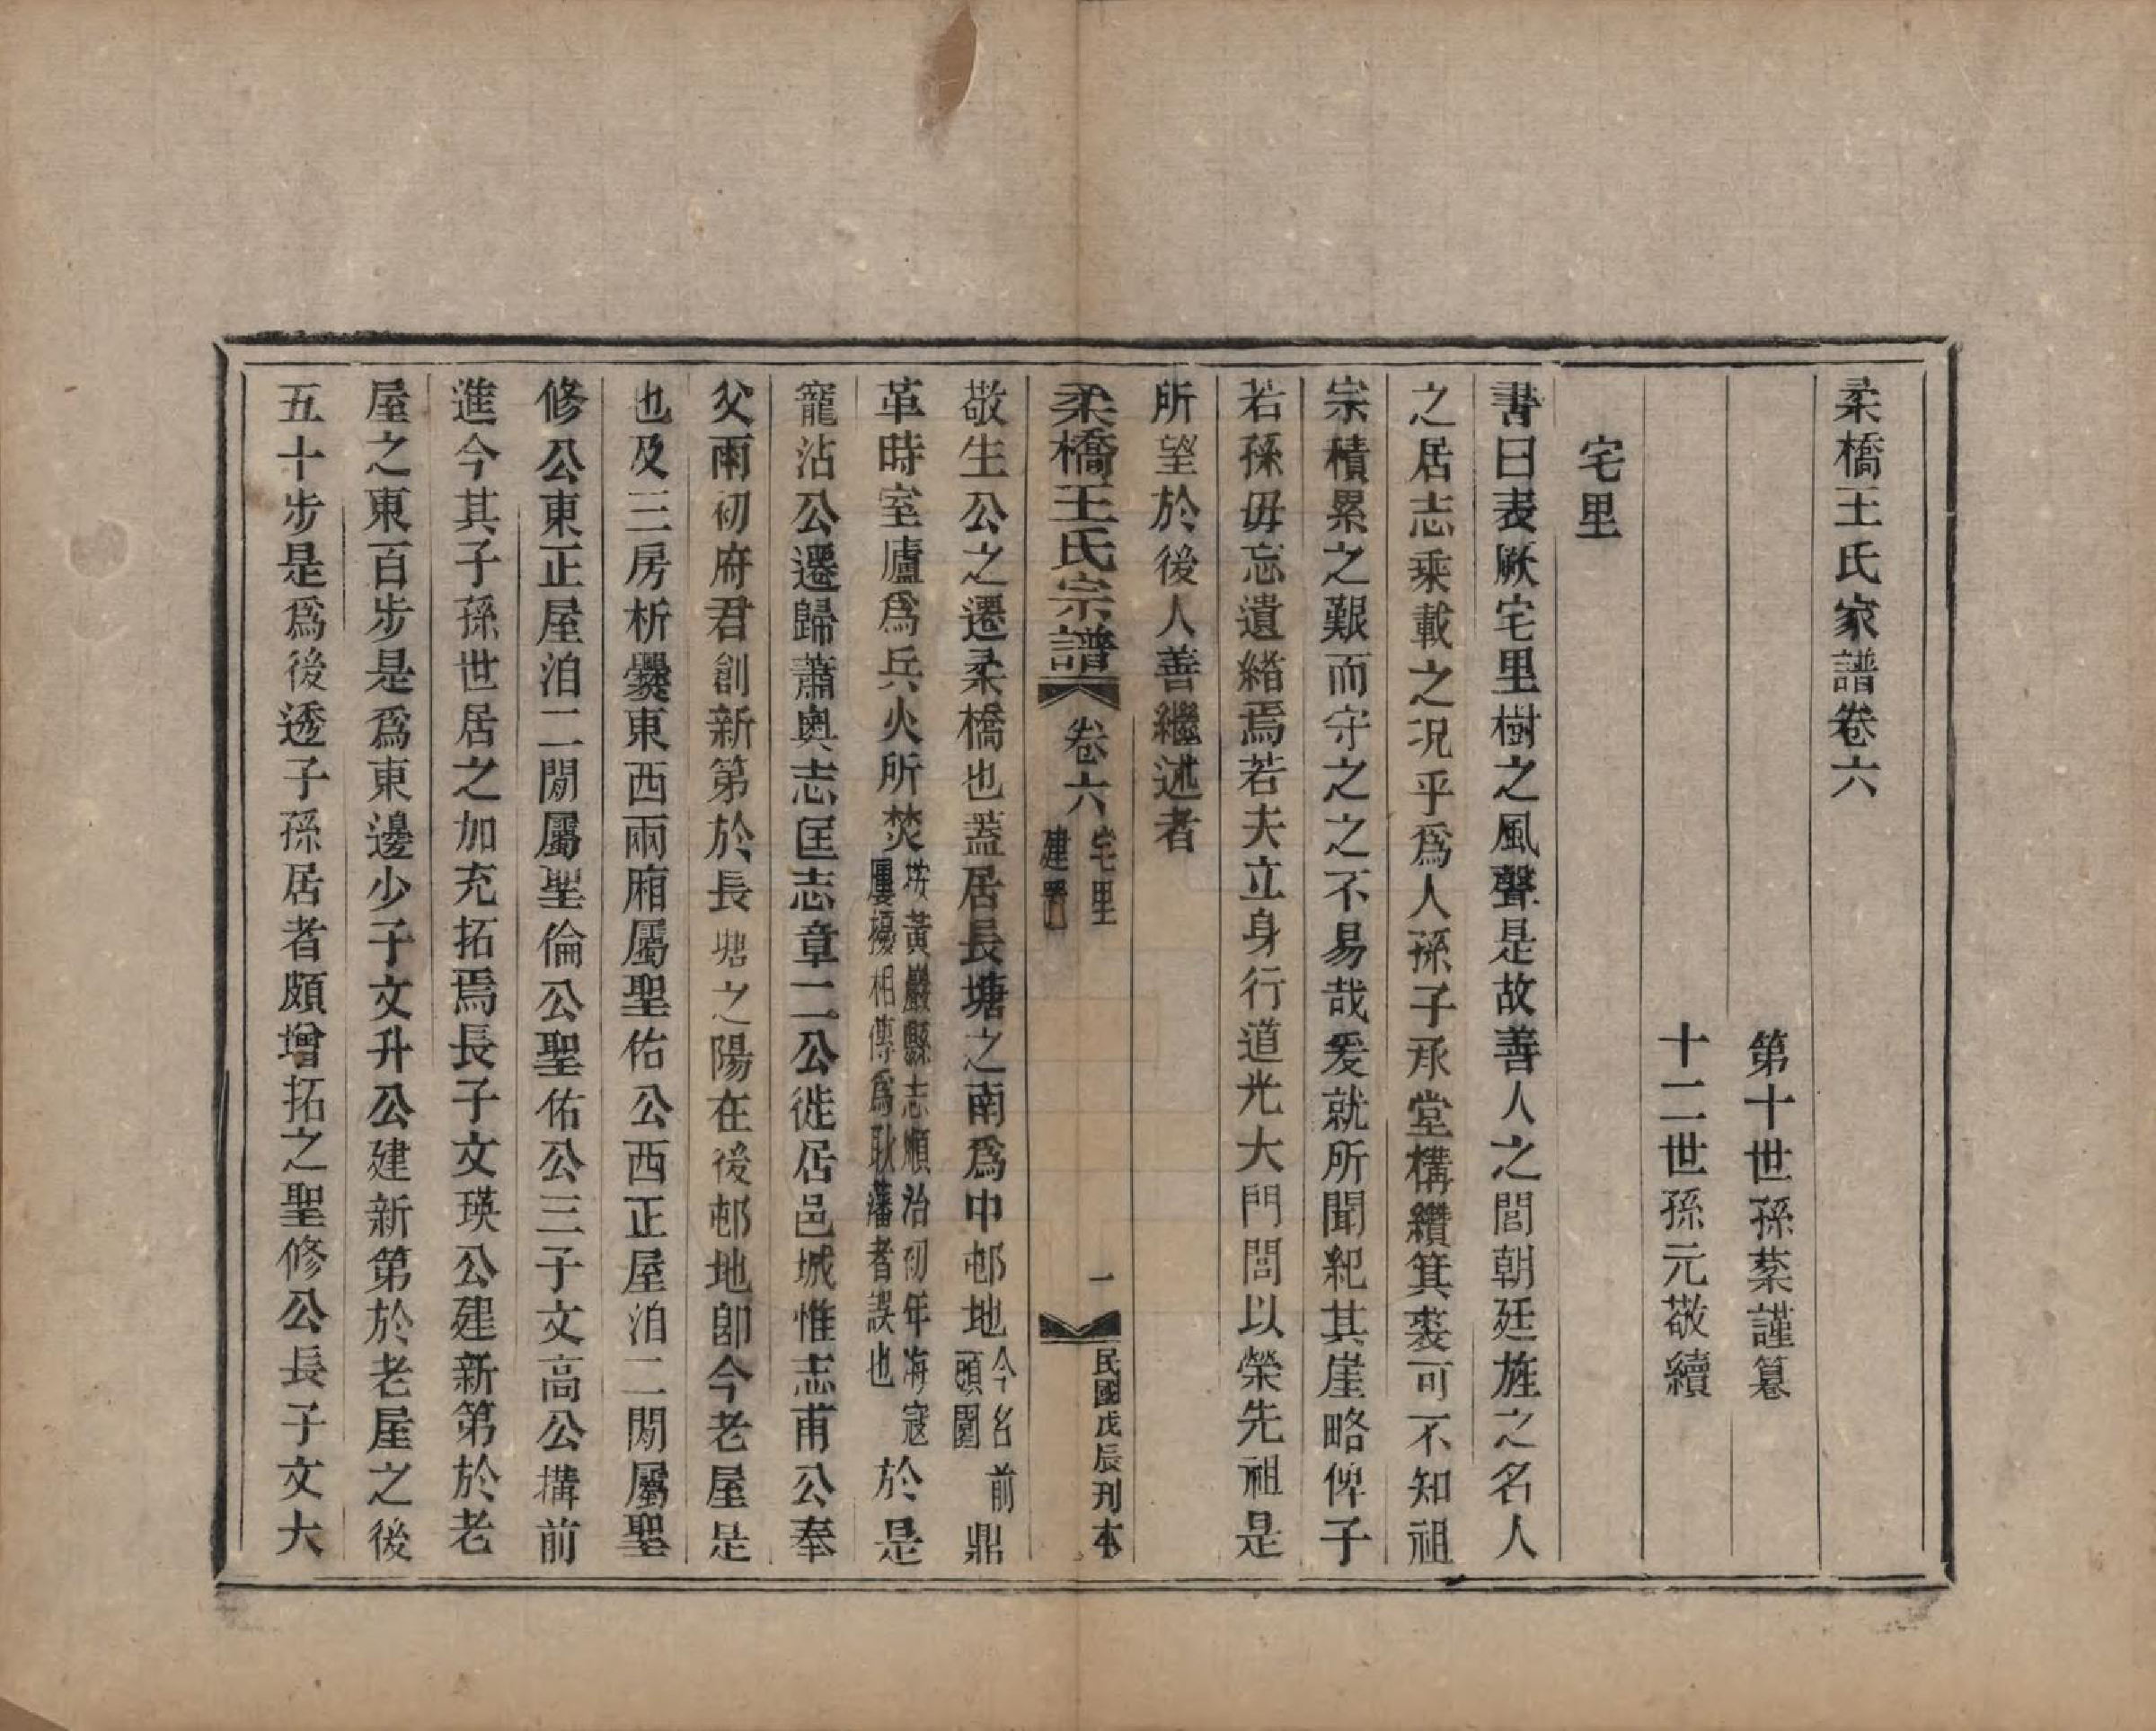 柔橋王氏家譜卷六
第十世孫棻謹纂
十二世孫元敬續
宅里
書曰表厥宅里樹之風聲是故善人之閭朝廷旌之名人
之居志乘載之况乎爲人孫子承堂構纘箕裘可不知祖
宗積累之艱而守之之不易哉爰就所聞紀其崖略俾子
若孫毋忘遺緖焉若夫立身行道光大門閭以榮先祖是
所望於後人善繼述者
柔橋王氏宗譜 卷六 宅里 建置 一 民國戊辰刊本
敬生公之遷柔橋也蓋居長塘之南爲中邨地今名前頤園前鼎
革時室廬爲兵火所焚按黃巖縣志順治初年海寇屢擾相傳爲耿藩者誤也於是
寵沾公遷歸蕭奧志匡志章二公徙居邑城惟志甫公奉
父雨初府君創新第於長塘之陽在後邨地卽今老屋是
也及三房析爨東西兩廂屬聖佑公西正屋洎二閒屬聖
修公東正屋洎二閒屬聖倫公聖佑公三子文高公搆前
進今其子孫世居之加充拓焉長子文瑛公建新第於老
屋之東百步是爲東邊少子文升公建新第於老屋之後
五十步是爲後透子孫居者頗增拓之聖修公長子文大